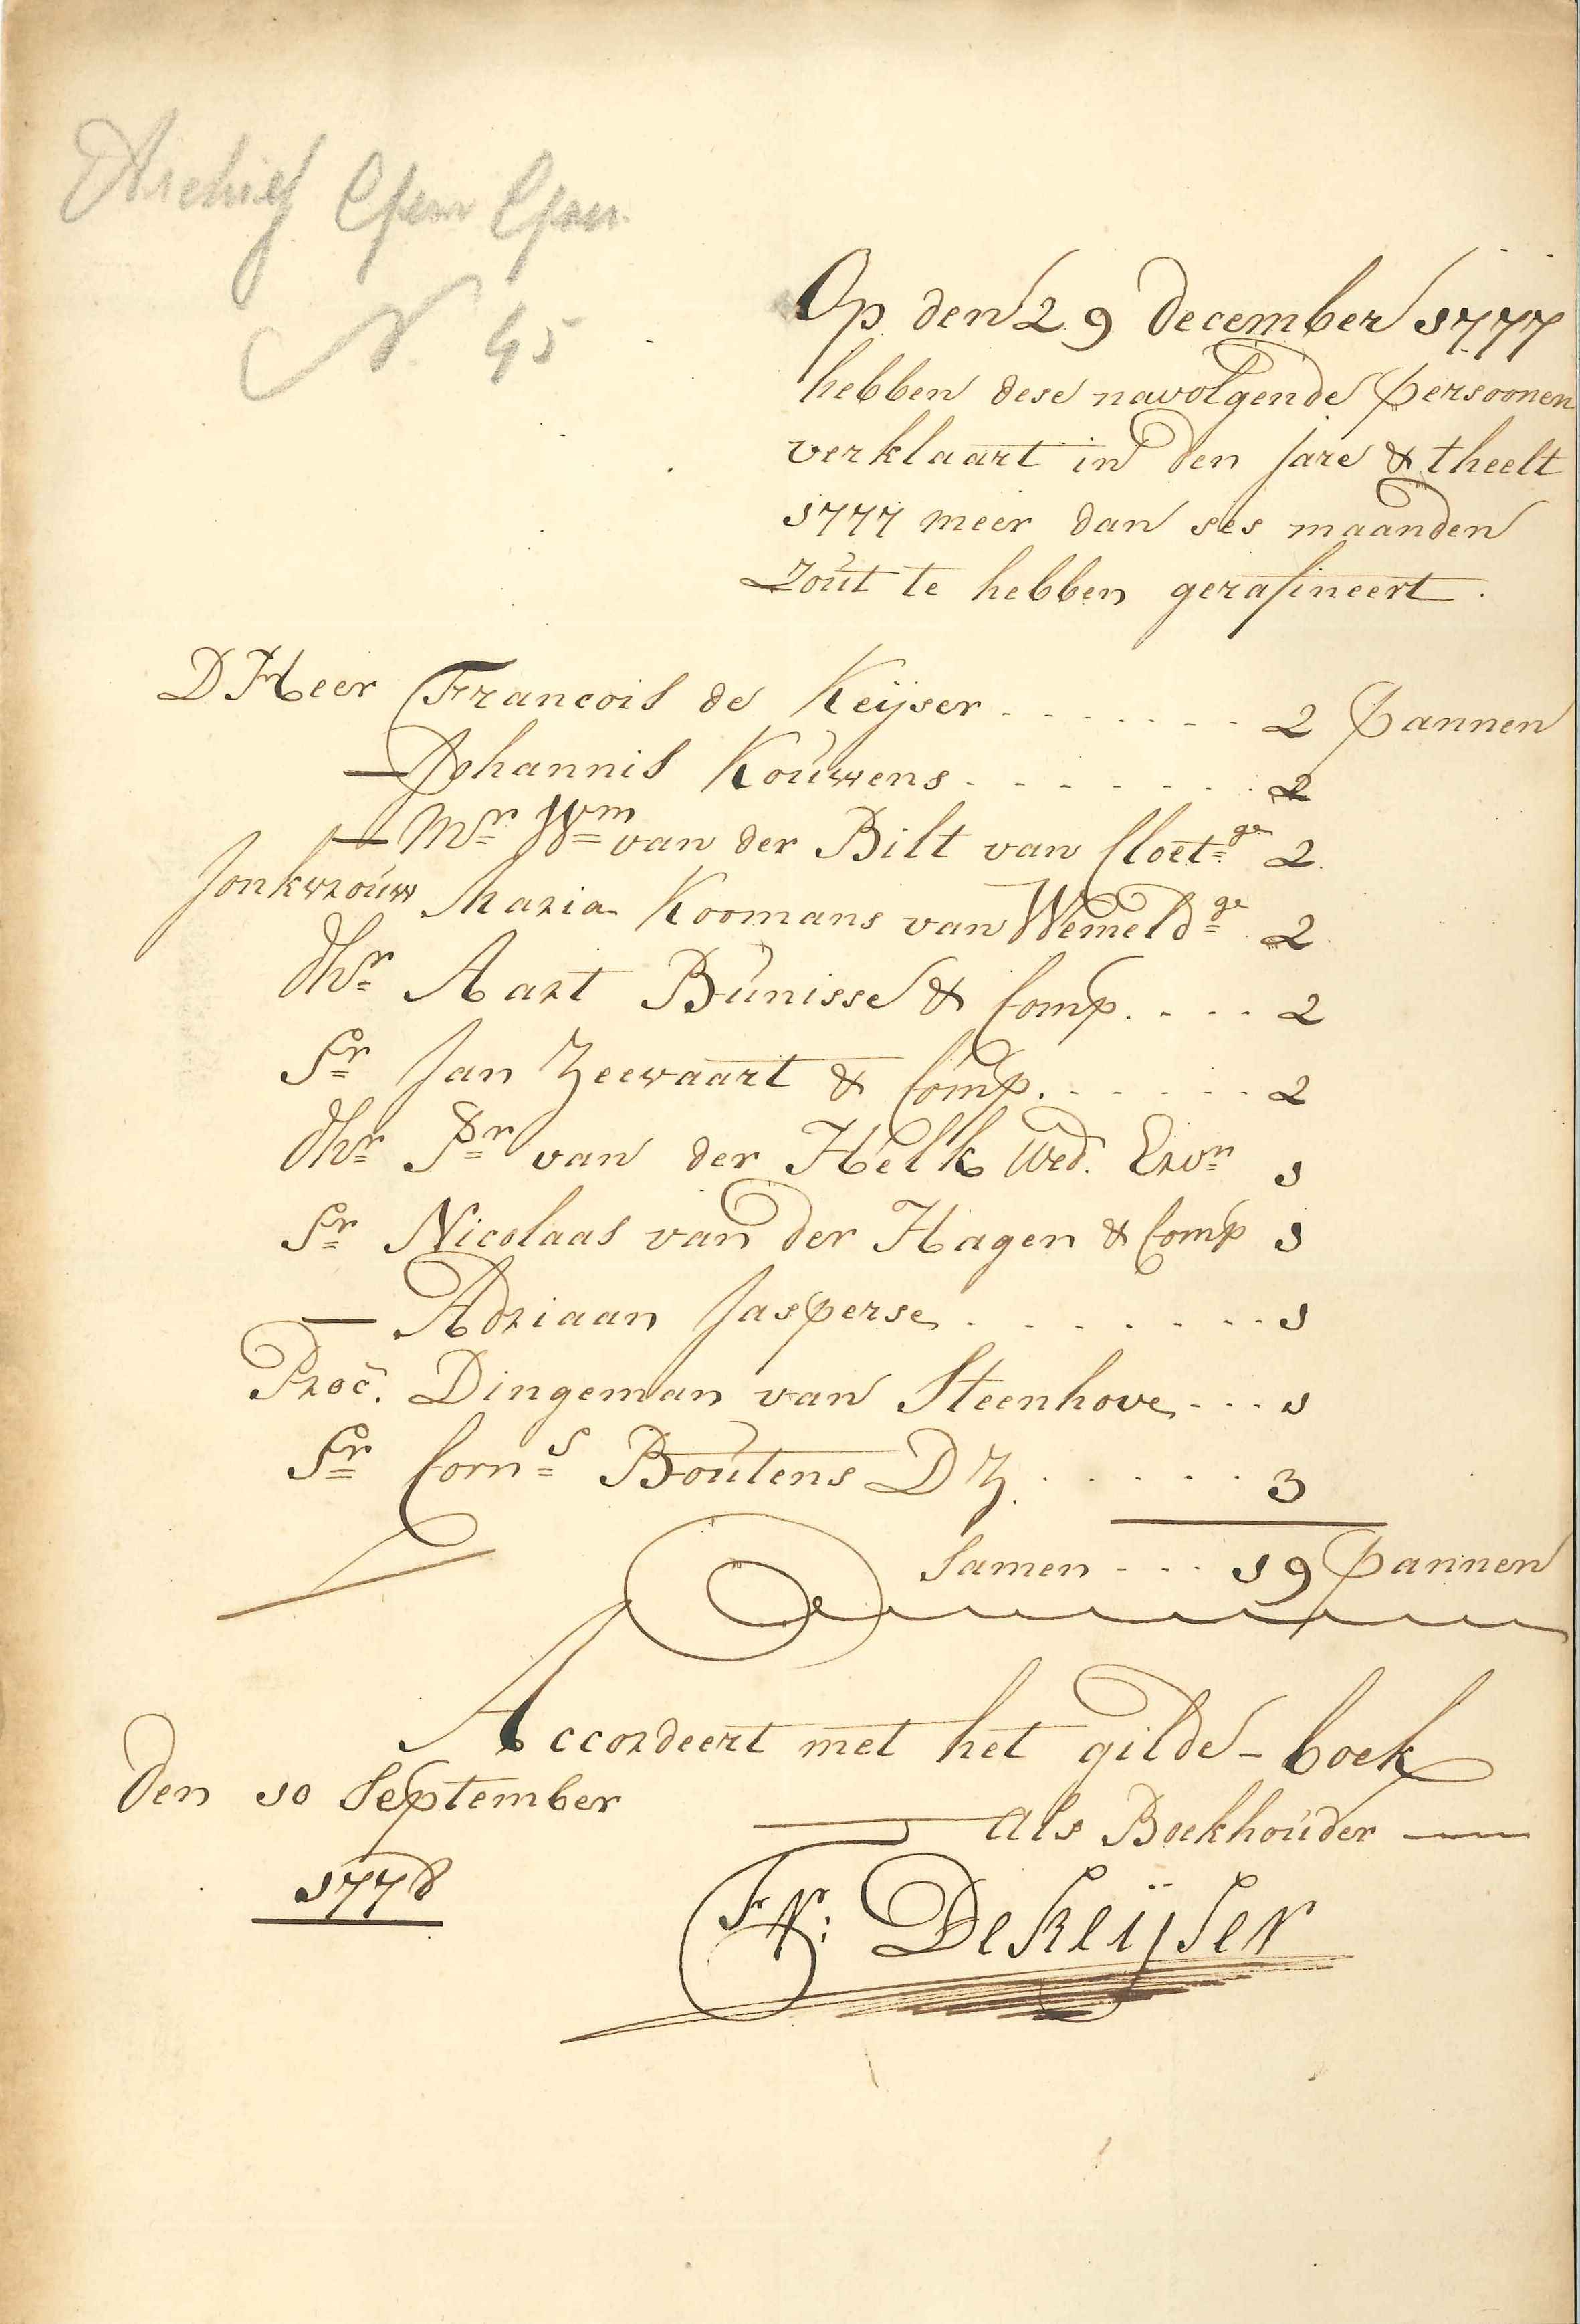 Archief Gem Goes
N. 45
Op den 29 december 1777
hebben dese navolgende persoonen
verklaart in den jare & theelt
1777 meer dan ses maanden
Zout te hebben gerafineert.
D Heer Francois de Keijser . . . . . . . 2 pannen
— Johannis Kouwens . . . . . . . 2
— Mr Wm van der Bilt van Cloetge 2.
Jonkvrouw Maria Koomans van Wemeldge 2
dhr Aart Bunisse & Comp. . . . . 2
Sr Jan Zeevaart & Comp. . . . . . . 2
dhr Pr van der Helk Wed. 1
Sr Nicolaas van der Hagen & Comp 1
— Adriaan Jasperse . . . . . . . . 1
Proc. Dingeman van Steenhove . . . 1
Sr Corns Boutens D Z. . . . . . . 3
Samen . . . 19 pannen
Accordeert met het gilde-boek
den 10 September
als Boekhouder —
1778
Fr: De Keijser